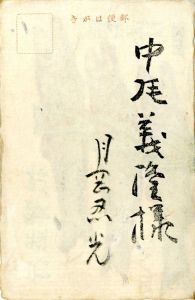 郵便はがき
中尾義隆様
月忍光